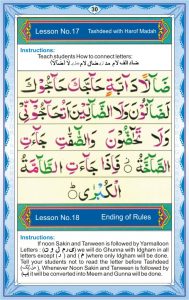 30
Lesson No.17 Tashdeed with Harof Madah
Instructions:
Teach students How to connect letters:
ضَآلًّا دَآبَّةٍ حَآجَّكَ حَآجُّوْكَ
لَضَآلُّوْنَ وَلَا الضَّآلِّيْنَ اَتُحَآجُّوْٓنِّيْ
وَلَا تَحٰٓضُّوْنَ وَالصّٰٓفّٰتِ جَآءَتِ
الصَّآخَّةُ فَاِذَا جَآءَتِ الطَّآمَّةُ
الْكُبْرٰى
Lesson No.18 Ending of Rules
Instructions:
If noon Sakin and Tanween is followed by Yarmalloon
Letters : we will do Ghunna with Idgham in all
letters except ( ) and ( ) where only Idgham will be done.
Tell your students not to read the letter before Tashdeed
Whenever Noon Sakin and Tanween is followed by
it will be converted into Meem and Gunna will be done.